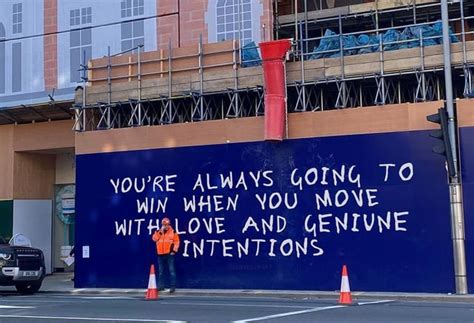 YOU'RE ALWAYS GOING TO
WIN WHEN YOU MOVE
WITH LOVE AND GENIUNE
INTENTIONS